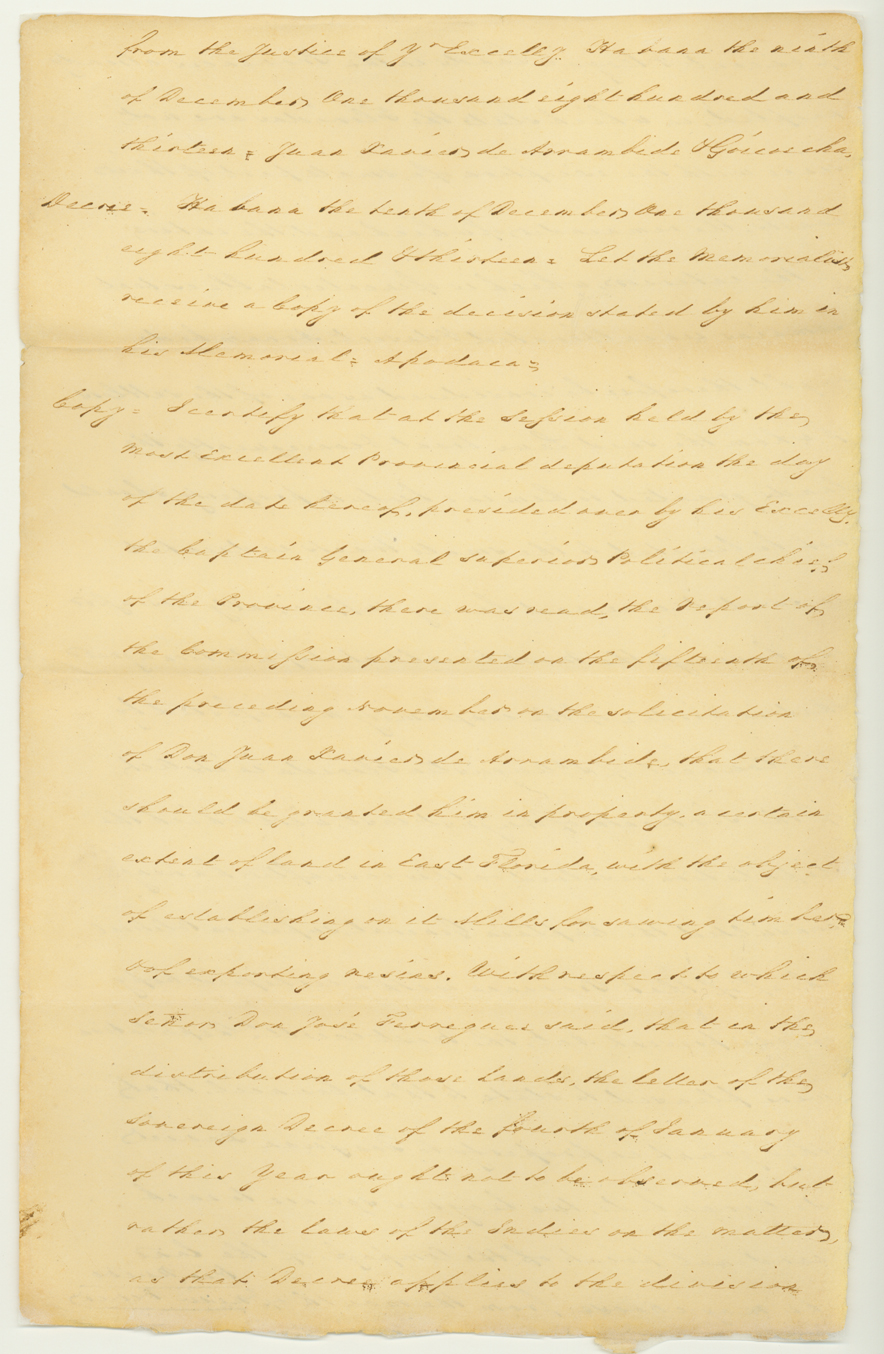 from the Justice of Yr Excelly. Habana the ninth
of December, One thousand eight hundred and
thirteen = Juan Xavier de Arrambide & Goicoechea.
Decree = Habana the tenth of December, One thousand
eight hundred & thirteen = Let the Memorialist
receive a Copy of the decision stated by him in
his Memorial = Apodaca =
Copy = I certify that at the Session held by the
most Excellent Provincial deputation the day
of the date hereof, presided over by his Excelly.
the Captain General superior Political chief
of the Province, there was read, the report of
the Commission presented on the fifteenth of
the preceding November on the solicitation
of Don Juan Xavier de Arrambide, that there
should be granted him in property, a certain
extent of land in East Florida, with the object
of establishing on it Mills for sawing timber
& of exporting resins. With respect to which
Señor Don José Ferregues said, that in the
distribution of those lands, the letter of the
Sovereign Decree of the fourth of January
of this Year ought not to be observed, but
rather the laws of the Indies on the matter,
as that Decree applies to the division